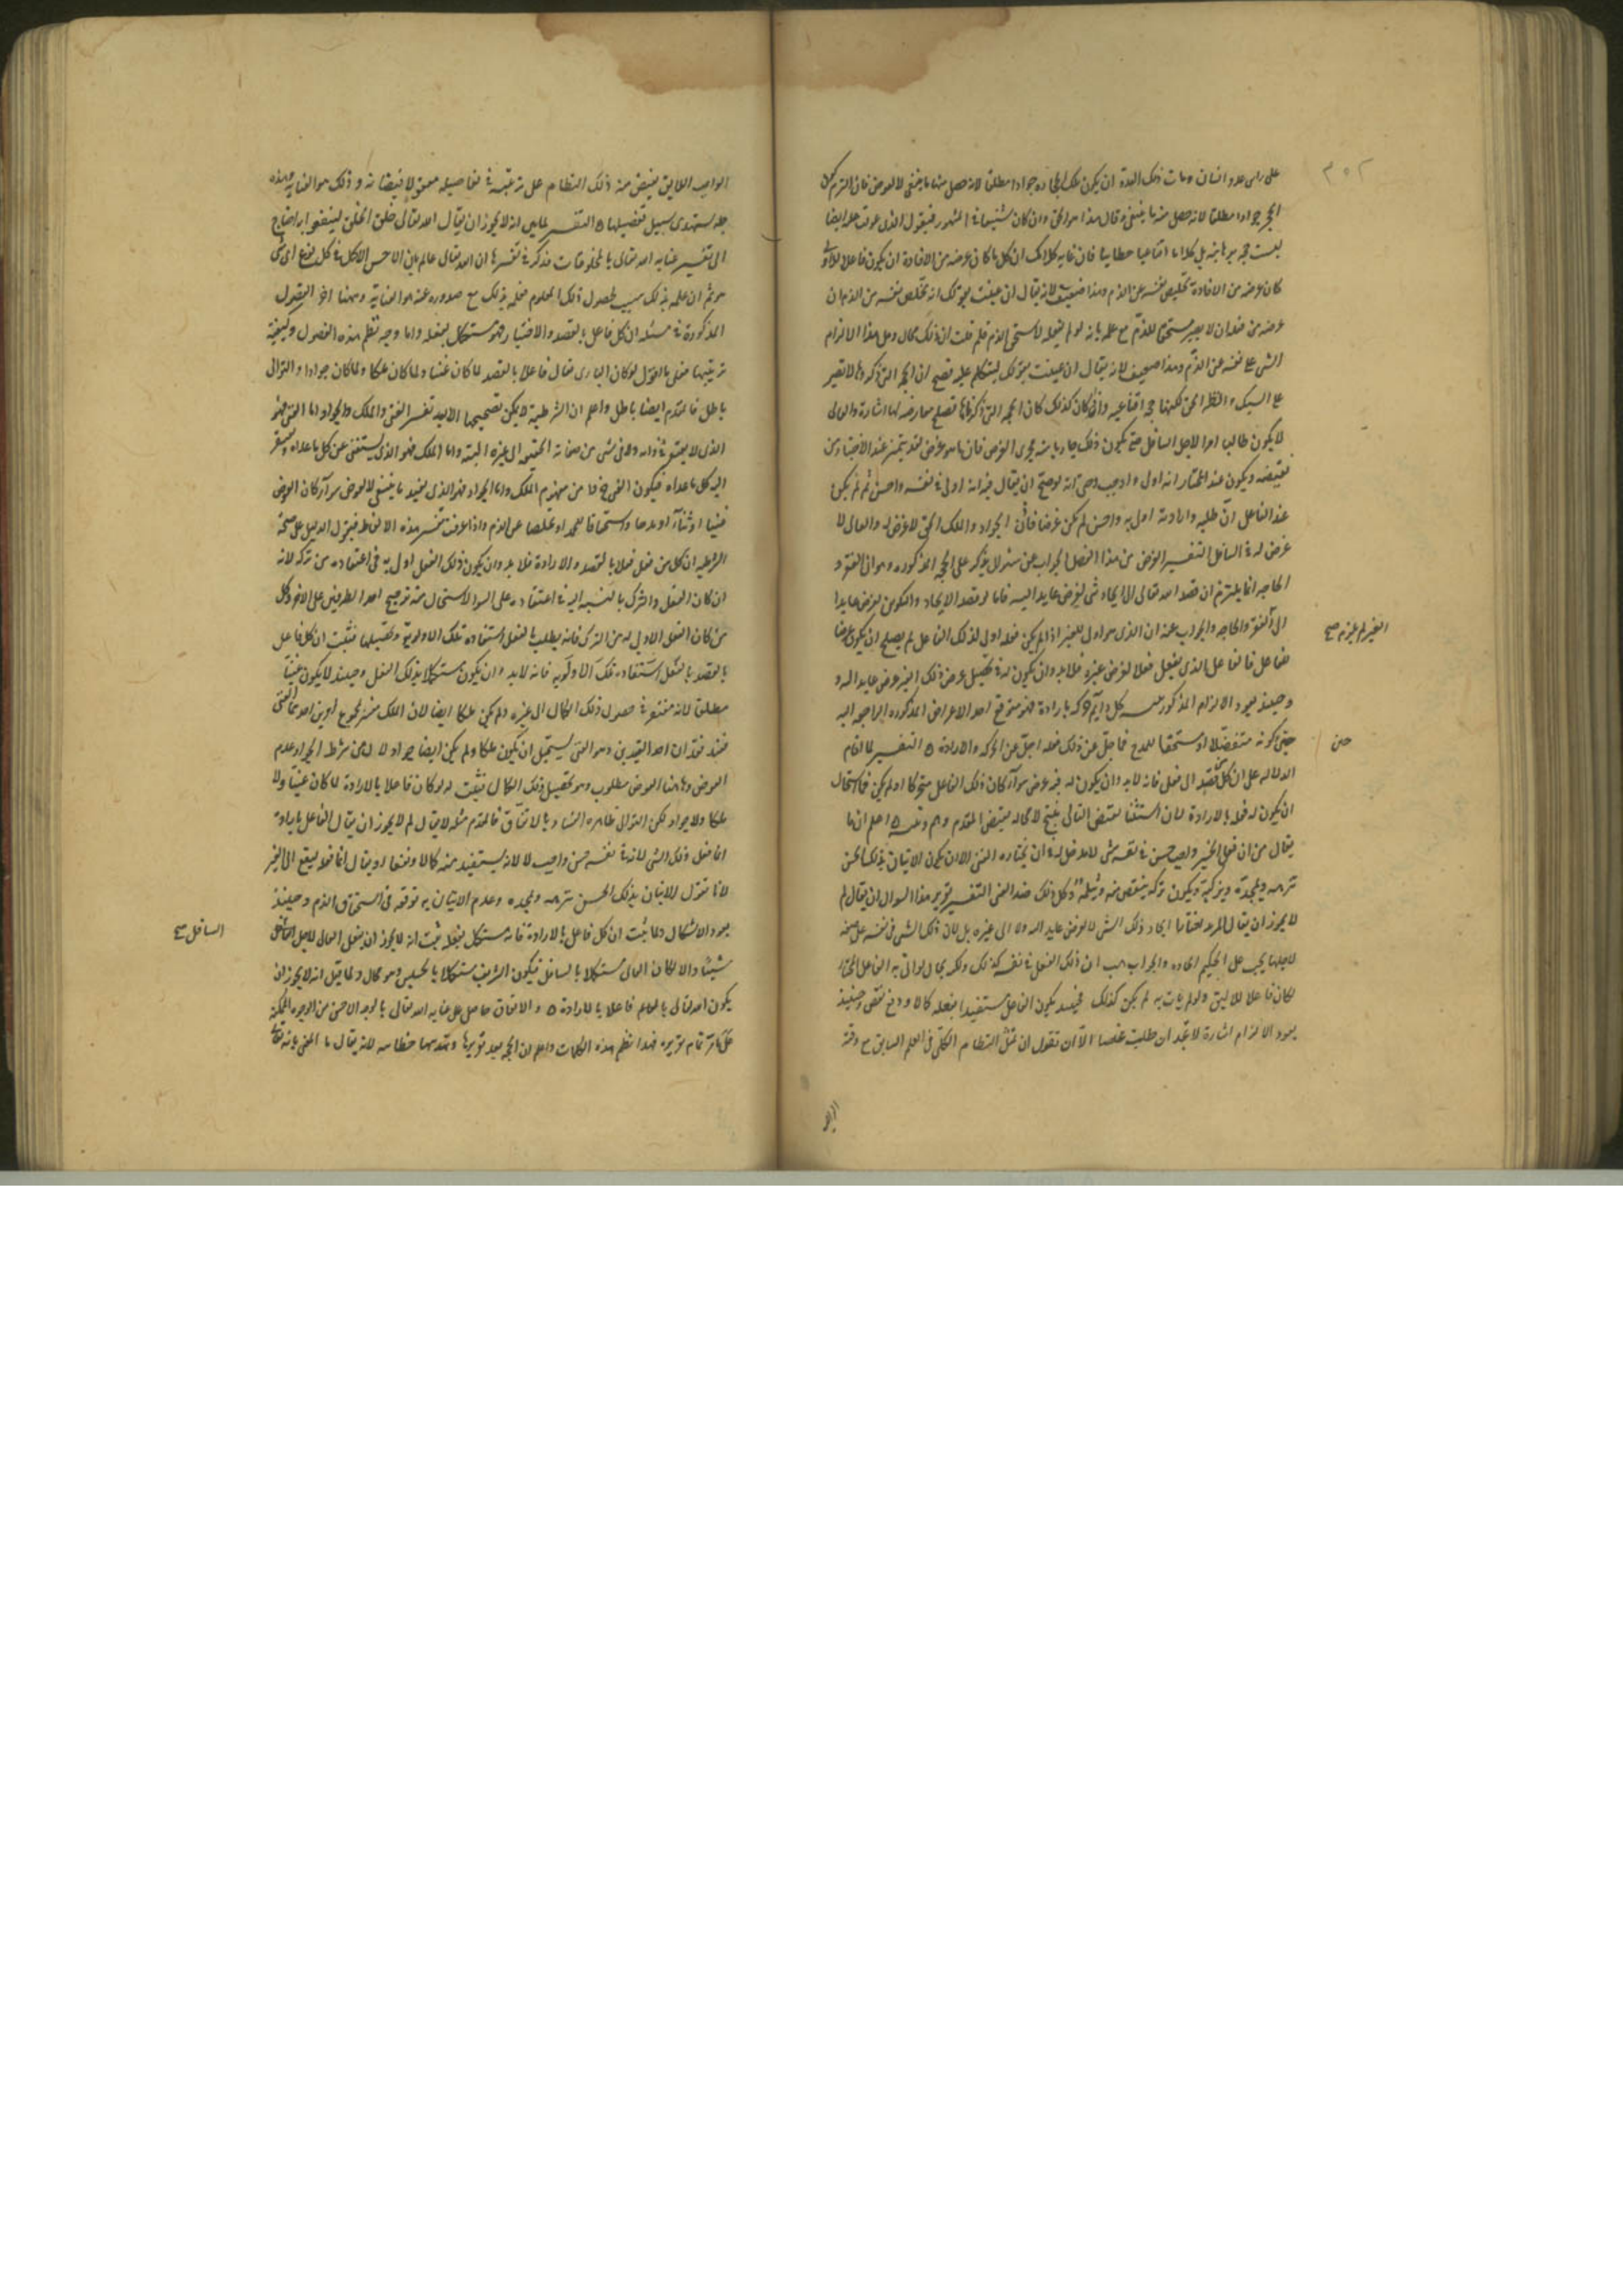 ٣٥٢
على راس عدو انسان ومات ذلك العدو ان يكون تلك الحجارة جوادا مطلقا لانه حصل منها ما ينبغى لا لعوض فان التزم كون
الحجر جوادا مطلقا لانه حصل منه ما ينبغى وقال هذا هو الحق وان كان شنيعا فى المشهور فنقول الذى عولت عليه ايضا
ليست حجة برهانية بل كلاما اقناعيا خطابيا فان غاية كلامك ان كل ما كان غرضه من الافادة ان يكون فاعلا للاولى
كان غرضه من الافادة تخليص نفسه عن الذم وهذا ضعيف لانه يقال ان عنيت بقولك انه تخلص نفسه من الذم ان
غرضه من فعله ان لا يصير مستحقا للذم مع علمه بانه لو لم يفعله لاستحق الذم فلم قلت ان ذلك محال وهل هذا الا الزام
الشى على نفسه عن الذم وهذا ضعيف لانه يقال ان عنيت بقولك ليتكلم عليه فصح ان الحجة التى ذكروها لا تصير
على السبك والنظر الحق لكنها حجة اقناعية واذا كان كذلك كان الحجة التى ذكرناها تصلح معارضة لها اشارة والعالى
لا يكون طالبا امرا لاجل السافل حتى يكون ذلك جاريا منه مجرى الغرض فان ما هو غرض فقد يتميز عند الاختيار من
نقيضه ويكون عند المختار انه اولى واوجب حتى انه لو صح ان يقال فيه انه اولى فى نفسه واحسن ثم لم يكن
عند الفاعل ان طلبه وارادته اولى به واحسن لم يكن غرضا فاذن الجواد والملك الحق لا غرض له والعالى لا
غرض له فى السافل التفسير الغرض من هذا الفصل الجواب عن سؤال يذكر على الحجة المذكورة وهو ان الفقر و
الحاجة انما يلتزم ان قصد الله تعالى الى ايجاد شى لغرض عايد اليه فاما لو قصد الايجاد والتكوين لغرض عايد ا
الى الفقر والحاجة والجواب عنه ان الذى هو اولى للغير اذا لم يكن فعله اولى لذلك الفاعل لم يصلح ان يكون غرضا
الغير لم يلزم صح
للفاعل فالفاعل الذى يفعل فعلا لغرض غيره فلا بد وان يكون له فى تحصيل غرض ذلك الغير غرض عايد اليه و
وحينئذ يعود الالزام المذكور كل دايم حركة بارادة فهو متوقع احد الاغراض المذكورة الراجعة اليه
حتى كونه متفضلا او مستحقا للمدح فما جل عن ذلك فعله اجل عن الحركة والارادة التفسير لما اقام
حتى
الدلالة على ان كل من قصد الى فعل فانه لا بد وان يكون له فيه غرض سوآء كان ذلك الفاعل متحركا او لم يكن فما استحال
ان يكون له فعله بالارادة لان استثنا نقيض التالى ينتج لا محالة نقيض المقدم وهم وتنبيه اعلم ان ما
يقال من ان فعل الخير واجب حسن فى نفسه شى لا مدخل له فى ان يختاره الغنى الا ان يكون الاتيان بذلك الحسن
ينزهه ويمجده ويزكيه ويكون تركه ينقص منه ويثلمه وكل ذلك ضد الغنى التفسير تقرير هذا السوال ان يقال لم
لا يجوز ان يقال المريد يقصد ايجاد ذلك الشى لا لغرض عايد اليه ولا الى غيره بل لان ذلك الشى فى نفسه على صفة
لاجلها يجب على الحكيم ايجاده والجواب هب ان ذلك الفعل فى نفسه كذلك ولكنه بحال لو اتى به الفاعل المختار
لكان فاعلا للاليق ولو لم يات به لم يكن كذلك فحينئذ يكون الفاعل مستفيدا بفعله كمالا ودفع نقص وحينئذ
يعود الالزام اشارة لا تجد ان طلبت مخلصا الا ان تقول ان تمثل النظام الكلى فى العلم السابق مع وقته
الواجب اللايق يفيض منه ذلك النظام على ترتيبه فى تفاصيله معقولا فيضانه وذلك هو العناية وهذه
جملة ستهدى سبيل تفصيلها التفسير لما بين انه لا يجوز ان يقال الله تعالى خلق الخلق لينتفعوا به احتاج
الى تفسير عناية الله تعالى بالمخلوقات فذكر فى تفسيرها ان الله تعالى عالم بان الاحسن الاكمل فى كل نوع اى شى
هو ثم ان علمه بذلك سبب لحصول ذلك المعلوم فعلمه بذلك مع صدوره عنه هو العناية وههنا اخر الفصول
المذكورة فى مسئلة ان كل فاعل بالقصد والاختيار فهو مستكمل بفعله واما وجه نظم هذه الفصول وكيفية
ترتيبها فنقول لو كان البارى تعالى فاعلا بالقصد لما كان غنيا ولما كان ملكا ولما كان جوادا والتوالى
باطل فالمقدم ايضا باطل واعلم ان الشرطية لا يمكن تصحيحها الا بعد تفسير الغنى والملك والجواد اما الغنى فهو
الذى لا يفتقر فى ذاته ولا فى شى من صفاته الحقيقية الى غيره البتة واما الملك فهو الذى يستغنى عن كل ما عداه ويفتقر
اليه كل ما عداه فيكون الغنى جزءا من مفهوم الملك واما الجواد فهو الذى يفيد ما ينبغى لا لعوض سوآء كان العوض
عينا او ثنآء او مدحا واستحقاقا للحمد او تخلصا عن الذم واذا عرفت تفسير هذه الالفاظ فنقول الدليل على صحة
الشرطية ان كل من فعل فعلا بالقصد والارادة فلا بد وان يكون ذلك الفعل اولى به فى اعتقاده من تركه لانه
ان كان الفعل والترك بالنسبة اليه فى اعتقاده على السوا لاستحال منه ترجيح احد الطرفين على الاخر وكل
من كان الفعل اولى به من الترك فانه يطلب بالفعل استفادة تلك الاولوية وتحصيلها فثبت ان كل فاعل
بالقصد بالفعل استفادة تلك الاولوية فانه لابد وان يكون مستكملا بذلك الفعل وحينئذ لا يكون غنيا
مطلقا لانه مفتقر فى حصول ذلك الكمال الى غيره ولم يكن ملكا ايضا لان الملك مفسر بمجموع امرين احدهما الغنى
فعند فقدان احد القيدين وهو الغنى يستحيل ان يكون ملكا ولم يكن ايضا جوادا لان من شرط الجواد عدم
العوض وهاهنا العوض مطلوب وهو تحصيل ذلك الكمال فثبت انه لو كان فاعلا بالارادة لما كان غنيا ولا
ملكا ولا جوادا لكن التوالى ظاهرة الفساد بالاتفاق فالمقدم مثله لا يقال لم لا يجوز ان يقال الفاعل بارادة
انما فعل ذلك الشى لانه فى نفسه حسن واجب لا لانه يستفيد منه كمالا ونفعا او يقال انما فعله لينفع الى الغير
لانا نقول الاتيان بذلك الحسن ينزهه ويمجده وعدم الاتيان به يوقعه فى استحقاق الذم وحينئذ
يعود الاشكال ولما ثبت ان كل فاعل بالارادة فانه مستكمل بفعله ثبت انه لا يجوز ان يفعل العالى لاجل السافل
السافل صح
شيئا والا لكان العالى مستكملا بالسافل فيكون الشريف مستكملا بالخسيس وهو محال ولما قيل انه لا يجوز ان
يكون الله تعالى بالعالم فاعلا بالارادة والاتفاق حاصل على عناية الله تعالى بالوجه الاحسن من الوجوه الممكنة
على تمام تقريره فهذا نظم هذه الكلمات واعلم ان الحجة بعد تقريرها وتهذيبها خطابية لانه يقال ما المعنى بانه تعالى